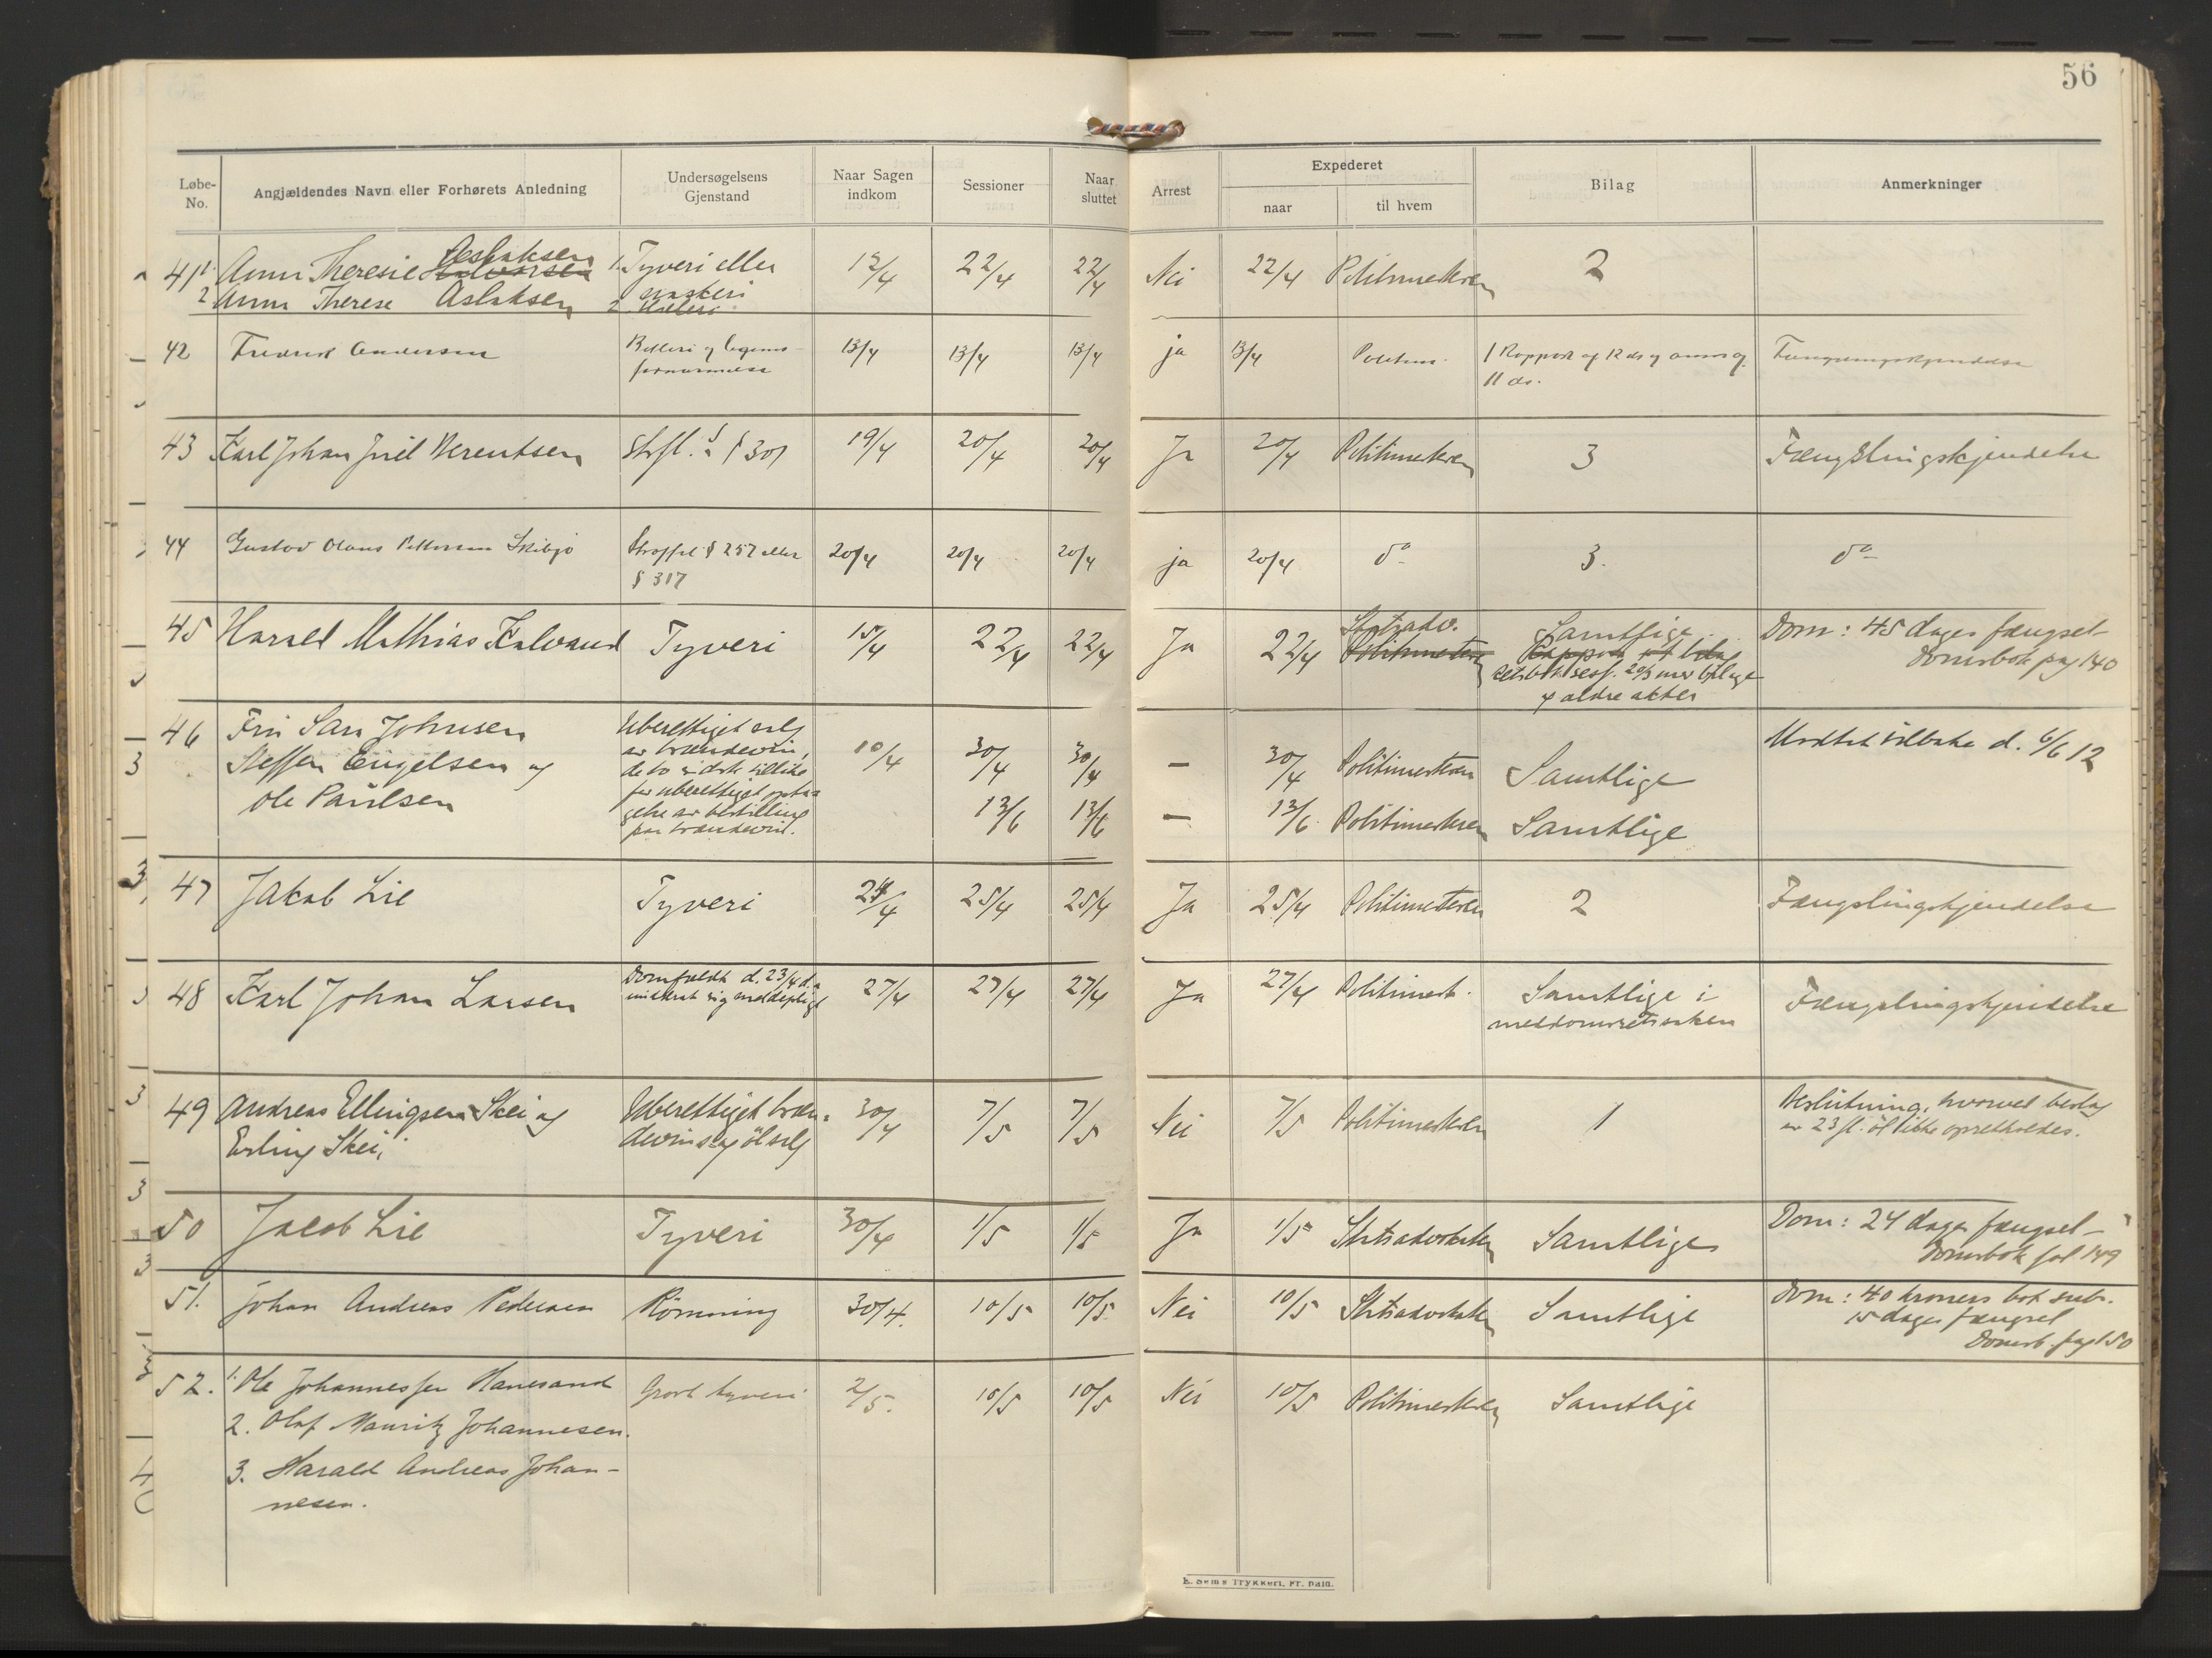 56
Løbe-No. Angjældendes Navn eller Forhørets Anledning Undersøgelsens Gjenstand Naar Sagen indkom Sessioner Naar sluttet Arrest Expederet naar til hvem Bilag Anmerkninger
41 1. Anna Theresie Halvorsen Aslaksen 1. Tyveri eller 12/4 22/4 22/4 Nei 22/4 Politimesteren 2
2 Anna Therese Aslaksen 2. Hæleri
42 Fredrik Andersen Betleri og legems- 13/4 13/4 13/4 ja 13/4 Politim. 1 Rapport af 12 ds og
fornærmelse 11 ds. Fængslingskjendelse
43 Karl Johan Juel Berentsen Strfl. § 301 19/4 20/4 20/4 Ja 20/4 Politimesteren 3 Fængslingskjendelse
44 Gustav Olaus Pettersen Straffel § 257 eller 20/4 20/4 20/4 ja 20/4 do 3. do
§ 317
45 Harald Mathias Kalvand Tyveri 15/4 22/4 22/4 Ja 22/4 Statsadv. Samtlige Dom: 45 dages fængsel
Politimesteren Rapport Domsbok pag 140
sess. 20/3 med bilage
og ældre akter
46 Fru Sara Johnsen Uberettiget salg 10/4 30/4 30/4 — 30/4 Politimesteren Samtlige Modtat tilbake d. 6/6 12
Steffen Engelsen og av brændevin,
Ole Paulsen de to sidste tillike
for uberettiget opta=
gelse av bestilling 13/6 13/6 — 13/6 Politimesteren Samtlige
paa brændevin.
47 Jakob Lie Tyveri 24/4 25/4 25/4 Ja 25/4 Politimesteren 2 Fængslingskjendelse
48 Karl Johan Larsen Domfældt d. 23/4 27/4 27/4 27/4 Ja 27/4 Politimest. Samtlige i Fængslingskjendelse
sig meddomsretssaken
49 Andreas Ellingsen Skei og Uberettiget bræn= 30/4 7/5 7/5 Nei 7/5 Politimesteren 1 Beslutning, hvorved beslag
Erling Skei, devins og ölsalg av 23 fl. øl ikke opretholdes.
50 Jacob Lie Tyveri 30/4 1/5 1/5 Ja 1/5 Statsadvokaten Samtlige Dom: 24 dages fængsel —
Domsbok fol 149
51. Johan Andreas Pedersen Rømning 30/4. 10/5 10/5 Nei 10/5 Statsadvokaten Samtlige Dom: 40 kroners bot subs.
15 dages fængsel
Domsb. pag 150
52. 1. Ole Johannessen Hanesand Grovt tyveri 2/5. 10/5 10/5 Nei 10/5 Politimesteren Samtlige
2. Olaf Mauritz Johannesen.
3. Harald Andreas Johan-
nesen.
E. Sems Trykkeri, Fr. hald.